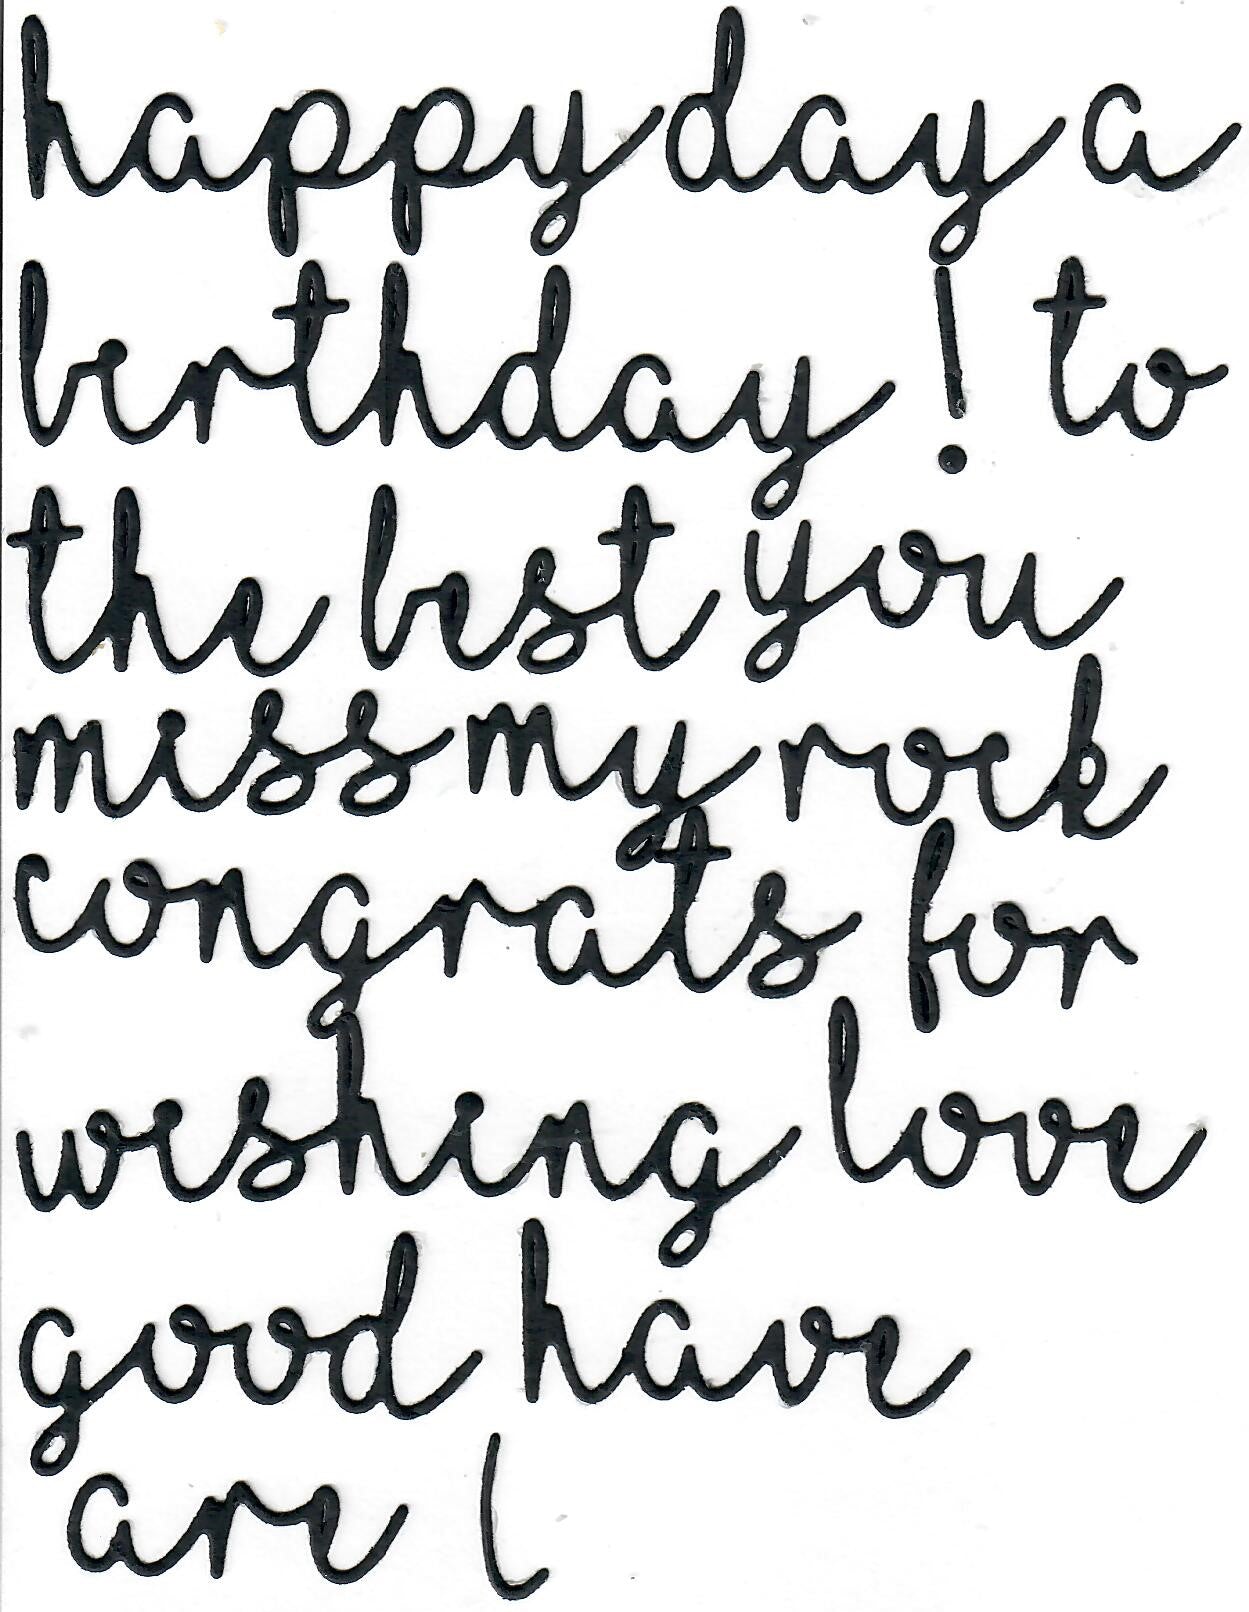 happy day a
birthday! to
the best you
miss my rock
congrats for
wishing love
good have
are I